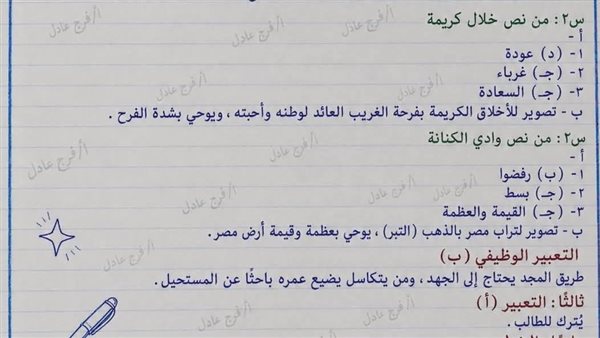 س٢: من نص خلال كريمة
أ -
١- (د) عودة
٢- (جـ) غرباء
٣- (جـ) السعادة
ب - تصوير للأخلاق الكريمة بفرحة الغريب العائد لوطنه وأحبته ، ويوحي بشدة الفرح .
س٢: من نص وادي الكنانة
أ -
١- (ب) رفضوا
٢- (جـ) بسط
٣- (جـ) القيمة والعظمة
ب - تصوير لتراب مصر بالذهب (التبر) ، يوحي بعظمة وقيمة أرض مصر .
التعبير الوظيفي (ب)
طريق المجد يحتاج إلى الجهد ، ومن يتكاسل يضيع عمره باحثًا عن المستحيل .
ثالثًا: التعبير (أ)
يُترك للطالب .
أ/ فرج عادل
أ/ فرج عادل
أ/ فرج عادل
أ/ فرج عادل
أ/ فرج عادل
أ/ فرج عادل
أ/ فرج عادل
أ/ فرج عادل
أ/ فرج عادل
أ/ فرج عادل
أ/ فرج عادل
أ/ فرج عادل